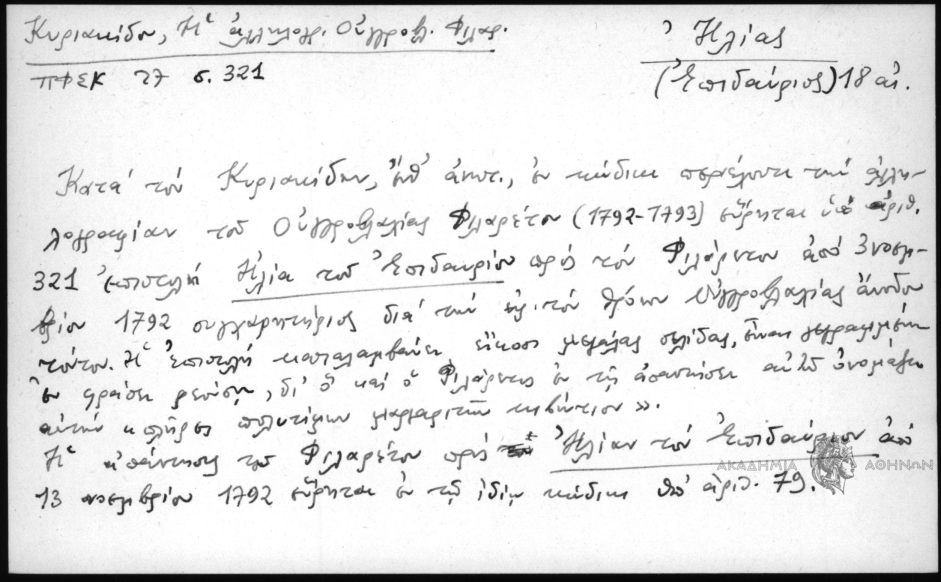 Κυριακίδου, Ἡ ἀλληλογρ. Οὑγγροβλ. Φιλαρ.
ΠΦΣΚ 27 σ. 321
Ἠλίας
(Ἐπιδαύριος) 18 αἰ.
Κατά τόν Κυριακίδην, ἔνθ' ἀνωτ., ἐν κώδικι περιέχοντι τήν ἀλλη-
λογραφίαν τοῦ Οὑγγροβλαχίας Φιλαρέτου (1792-1793) εὕρηται ὑπό ἀριθ.
321 ἐπιστολή Ἠλία τοῦ Ἐπιδαυρίου πρός τόν Φιλάρετον ἀπό 3 νοεμ-
βρίου 1792 συγχαρητήριος διά τήν εἰς τόν θρόνον Οὑγγροβλαχίας ἄνοδον
τούτου. Ἡ ἐπιστολή καταλαμβάνει εἴκοσι μεγάλας σελίδας, εἶναι γεγραμμένη
ἐν φράσει ῥεούσῃ, δι' ὅ καί ὁ Φιλάρετος ἐν τῇ ἀπαντήσει αὐτοῦ ὀνομάζει
αὐτήν «πλῆρες πολυτίμων μαργαριτῶν κιβώτιον».
Ἡ ἀπάντησις τοῦ Φιλαρέτου πρός Ἠλίαν τόν Ἐπιδαύριον ἀπό
13 νοεμβρίου 1792 εὕρηται ἐν τῷ ἰδίῳ κώδικι ὑπό ἀριθ. 79.
ΑΚΑΔΗΜΙΑ ΑΘΗΝΩΝ